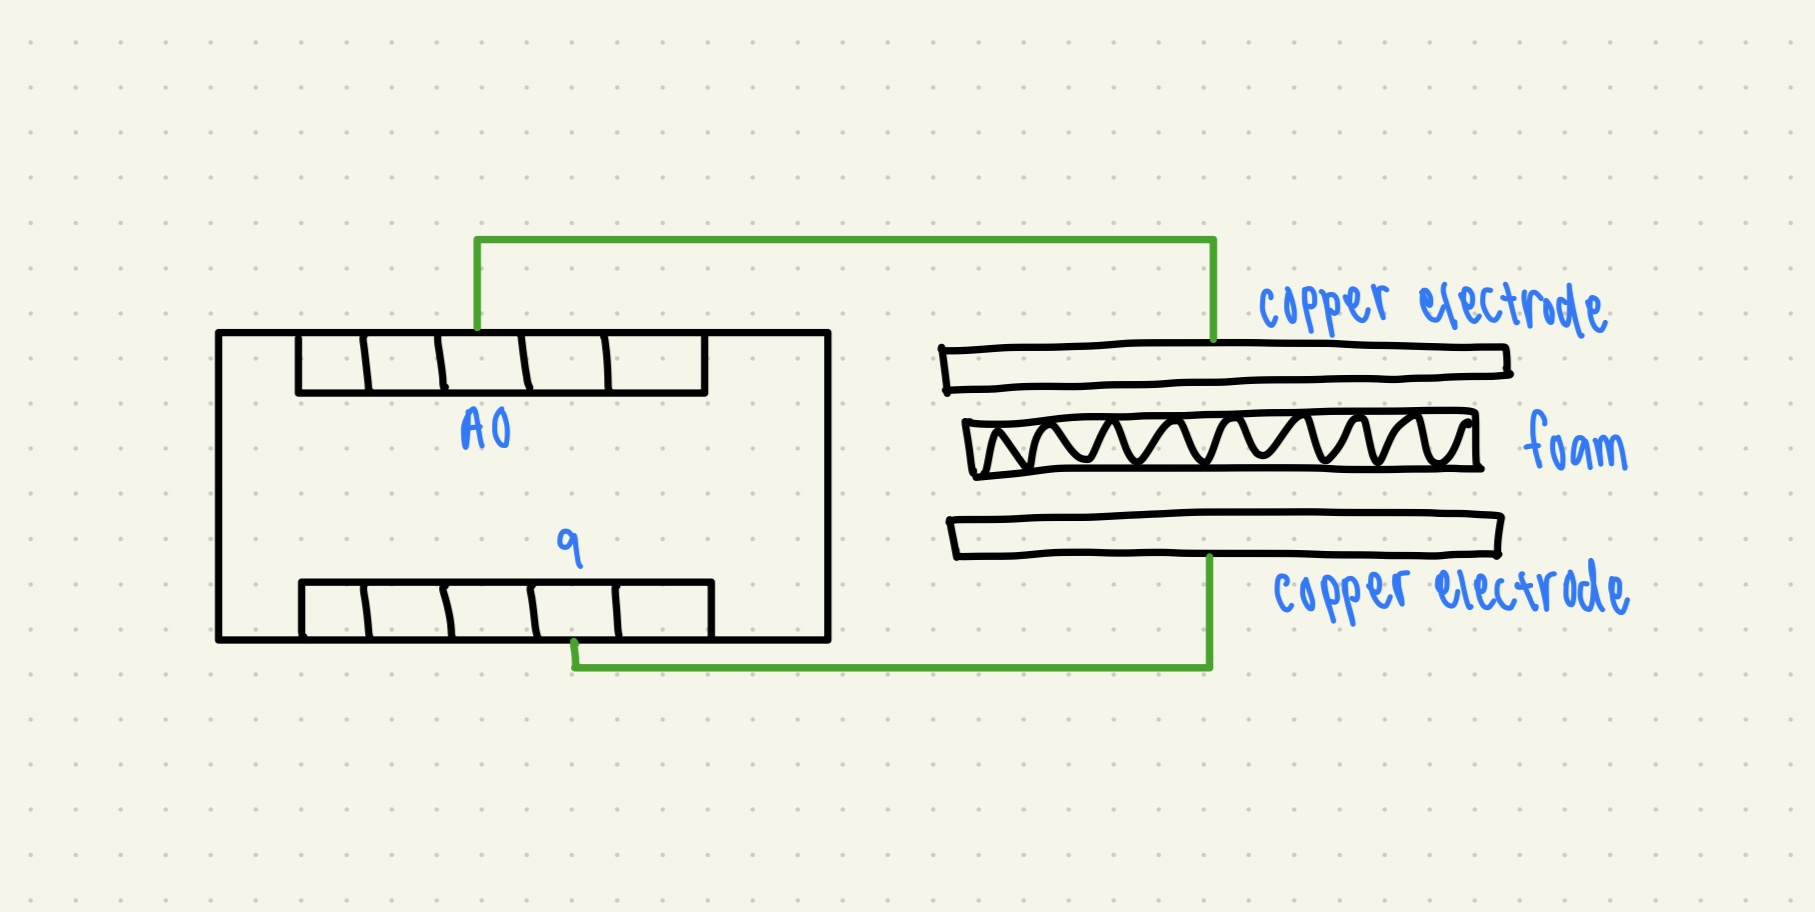 copper electrode
A0
foam
9
copper electrode